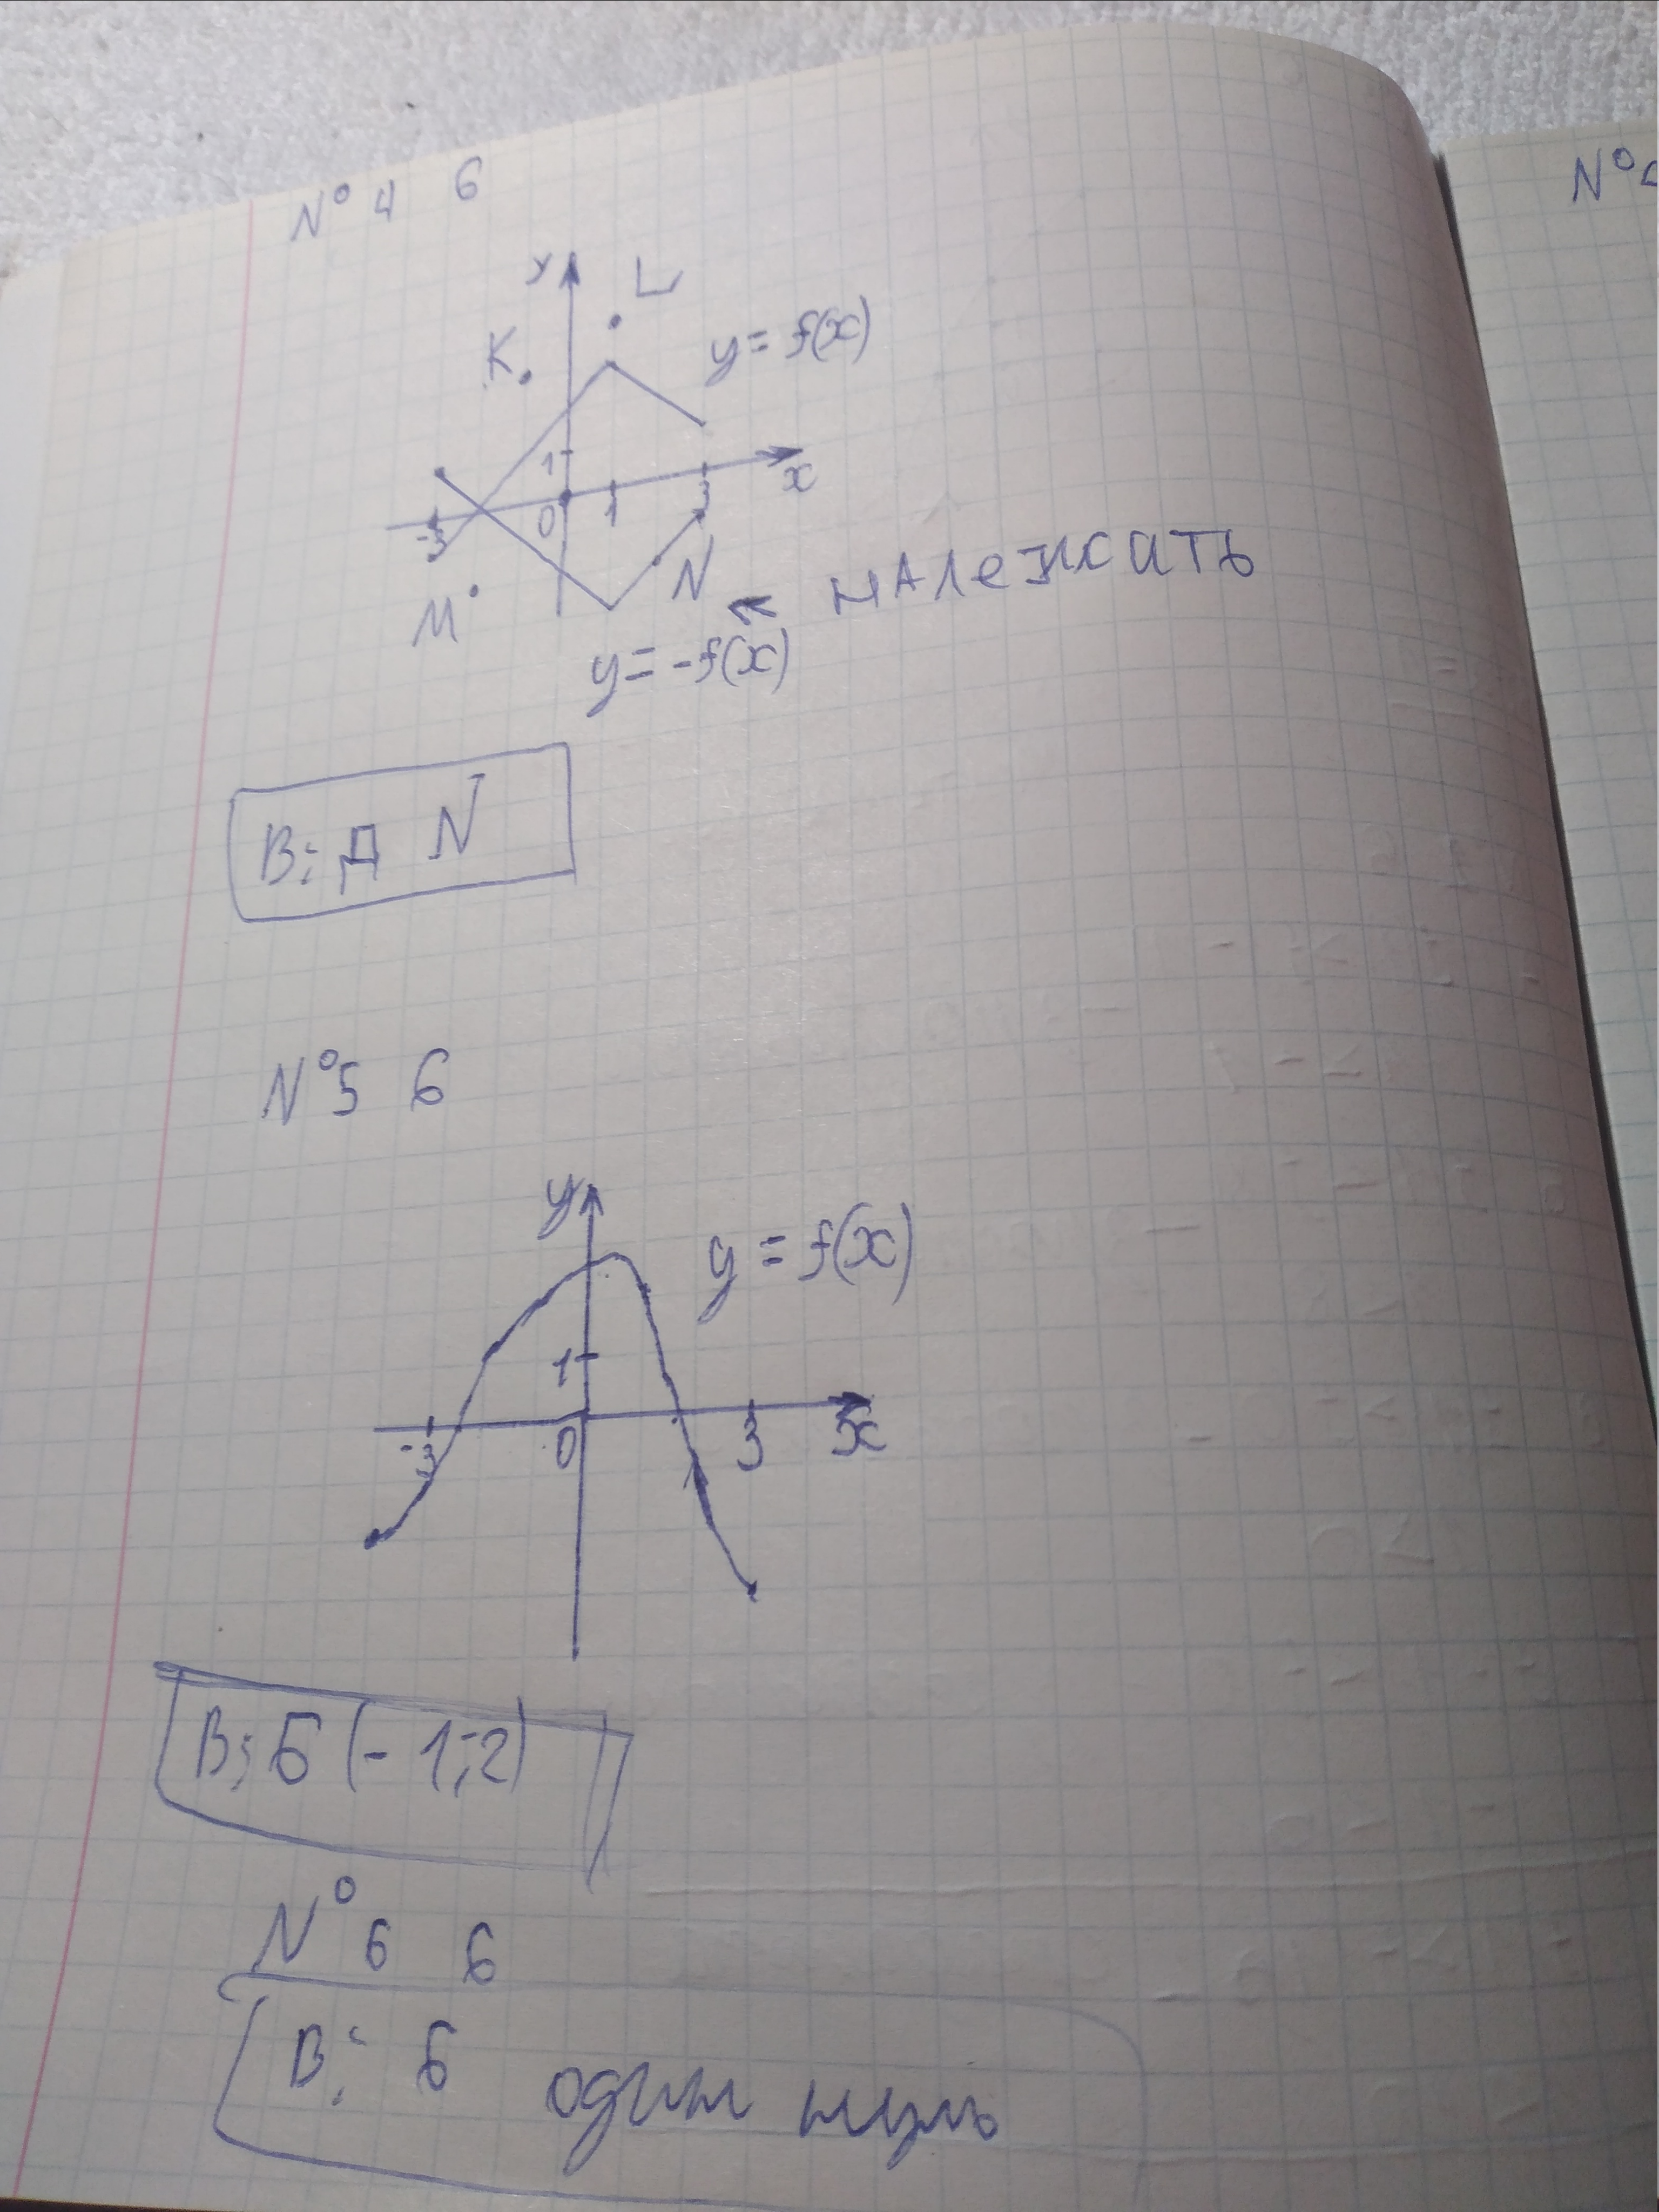 № 4 б
у L
K. y = f(x)
1
-3 0 1 3 x
M N ← належать
y = -f(x)
В: Д N
№5 б
y y = f(x)
1
-3 0 3 x
В: Б (-1; 2)
№ 6 б
В: Б один нуль
№